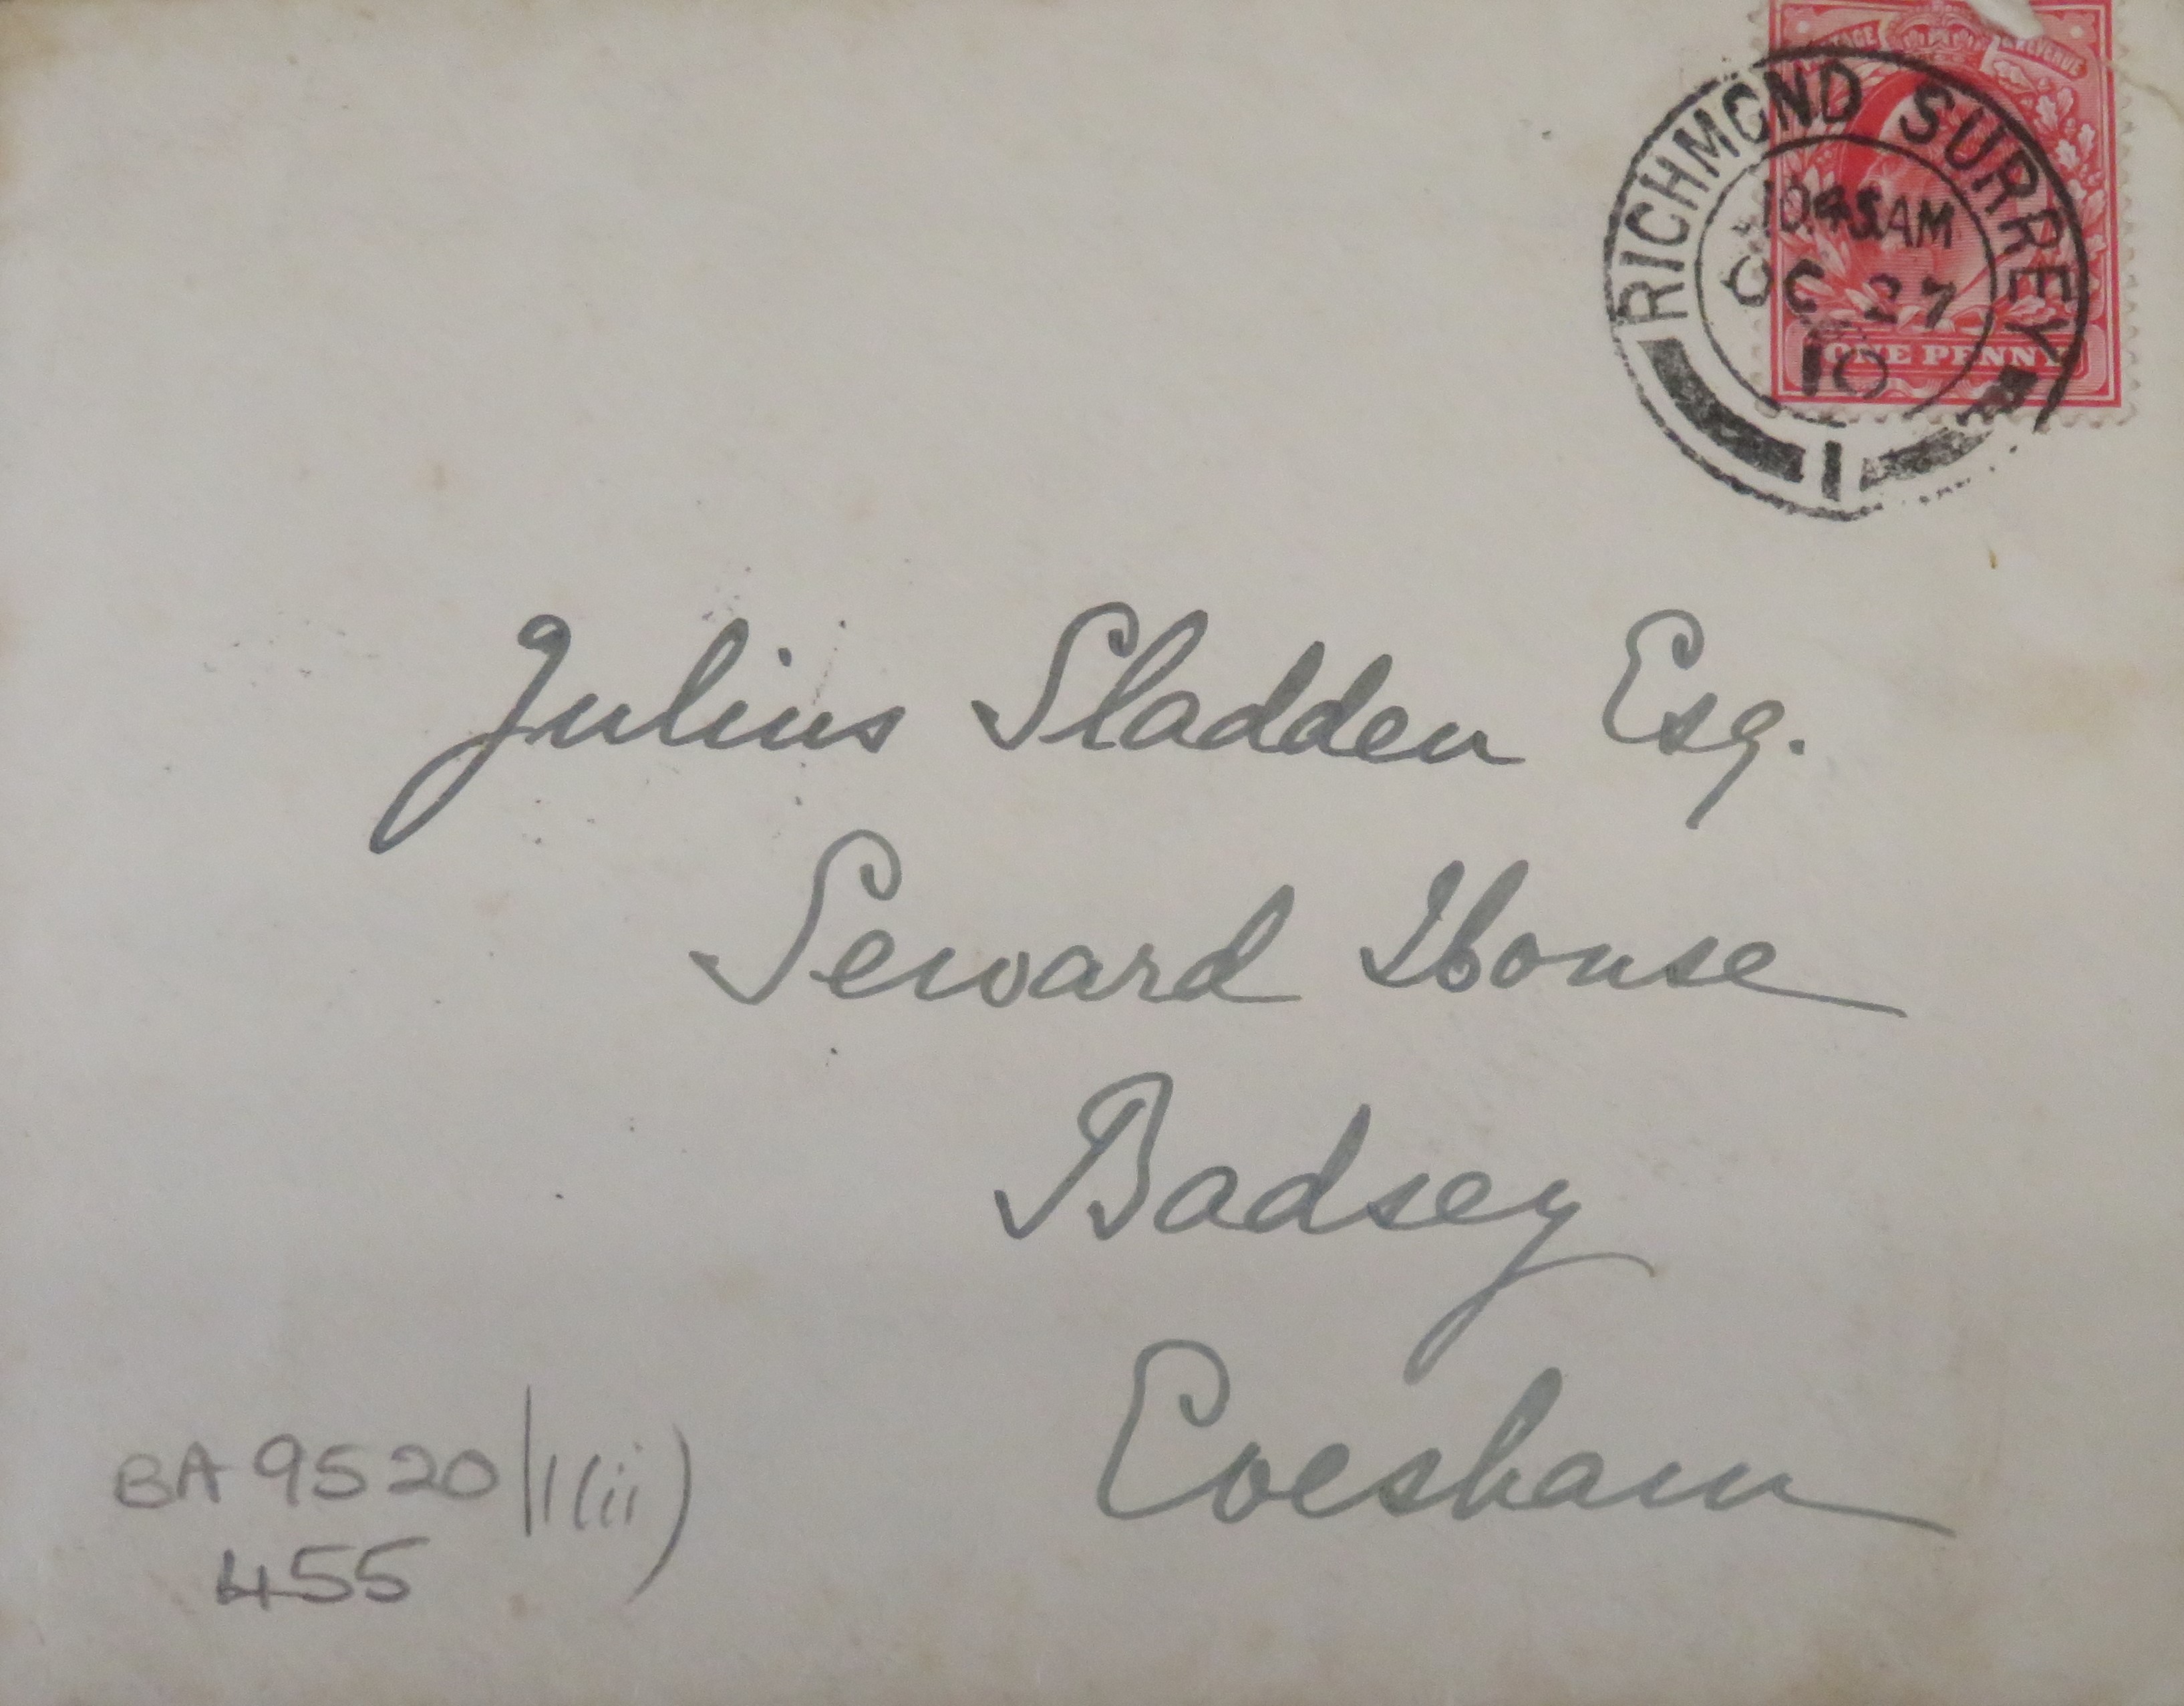 POSTAGE REVENUE
RICHMOND SURREY
10.45AM
OC 27
10
ONE PENNY
1
Julius Sladden Esq.
Seward House
Badsey
Evesham
BA 9520/1(ii)
455